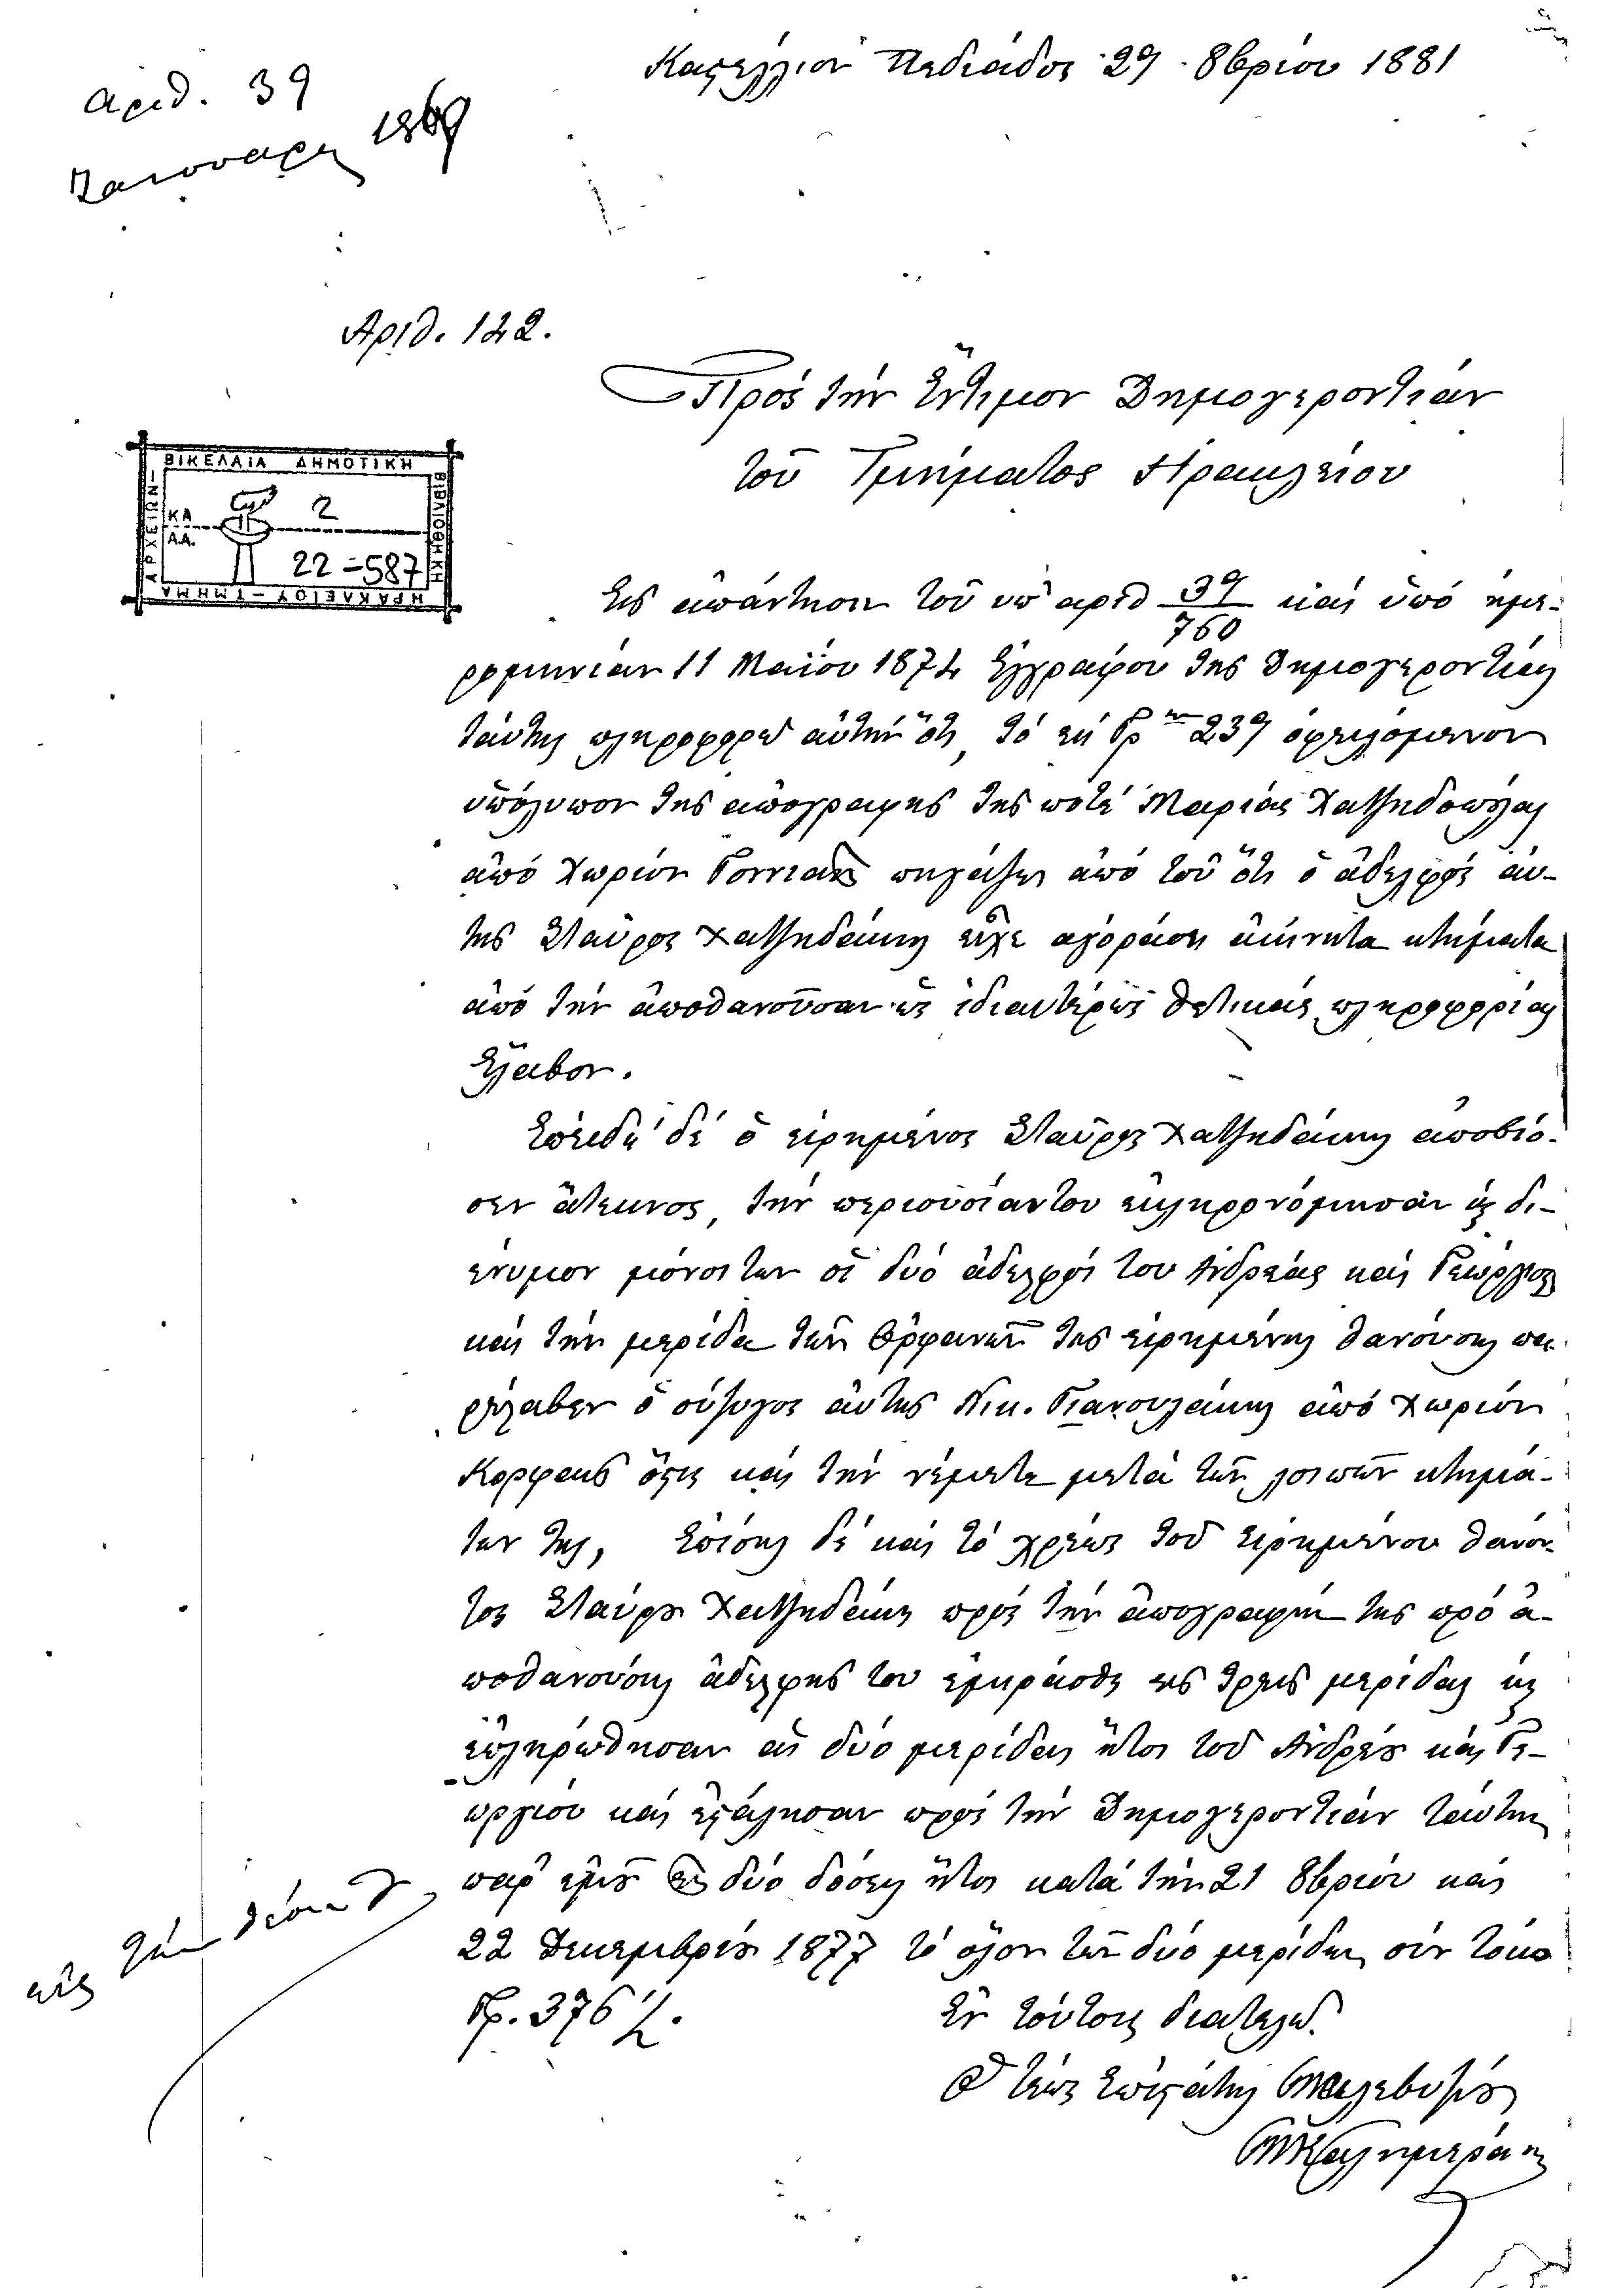 Καστέλλιον Πεδιάδος 29 8βρίου 1881
αριθ. 39
Ιανουαρ 1869
Αριθ. 142.
Πρός τήν Ἔντιμον Δημογεροντίαν
τοῦ Τμήματος Ηρακλείου
ΒΙΚΕΛΑΙΑ ΔΗΜΟΤΙΚΗ
ΒΙΒΛΙΟΘΗΚΗ
ΗΡΑΚΛΕΙΟΥ - ΤΜΗΜΑ
ΑΡΧΕΙΩΝ
ΚΑ 2
Α.Α. 22-587
Εις απάντησιν τοῦ υπ' αριθ 39/760 και ὑπό ημε-
ρομηνίαν 11 Μαϊου 1874 Εγγράφου της Δημογεροντίας
ταύτης πληροφορῶ αὐτήν ὅτι, τό εκ Γρ 239 οφειλόμενον
ὑπόλυπον της απογραφης της ποτέ Μαρίας Χατζηδοπούλας
ἀπό χωρίον Γωνιαῖς πηγάζει ἀπό τοῦ ὅτι ὁ ἀδελφός αυ-
της Σταῦρος Χατζηδάκης εἶχε αγοράσει ἀκίνητα κτήματα
ἀπό τήν ἀποθανοῦσαν ὡς ἰδιαιτέρως θετικάς πληροφορίας
Ἔλαβον.
Ἐπειδή δέ ὁ ειρημένος Σταῦρος Χατζηδάκης απεβίο-
σεν ἄτεκνος, τήν περιουσίαν του εκληρονόμησαν κ δι-
ενυμον μόνοι των οἱ δύο ἀδελφοί του Ανδρέας και Γεώργιος
και τήν μερίδα τῶν Ὀρφανῶν της ειρημένης θανούσης πα-
ρέλαβεν ὁ σύζυγος αὐτης Νικ. Γιανουλάκης ἀπό χωρίον
Κορφαις ὅστις και τήν νέμετε μετά τῶν λοιπῶν κτημά-
των της, Ἐπίσης δέ και τό χρέος τοῦ ειρημένου θανόν-
τος Σταύρου Χατζηδάκη πρός τήν ἀπογραφήν της πρό ἀ-
ποθανούσης ἀδελφης του εμηράσθη εις τρεις μερίδας κ
επληρώθησαν αἱ δύο μερίδες ἤτοι τοῦ Ανδρέου και Γε-
ωργίου και ἐστάλησαν πρός τήν Δημογεροντίαν ταύτην
παρ' εμοῦ εις δύο δόσεις ἤτοι κατά τήν 21 8βρίου και
22 Δεκεμβρίου 1877 τό ὅλον τῶν δύο μερίδων σύν τόκω
Γρ. 376 ½.
Ἐν τούτοις διατελῶ.
Ὁ τέως Ἐπιστάτης Μαλεβυζίου
Μ Καλημεράκης
εἰς τήν θέσιν